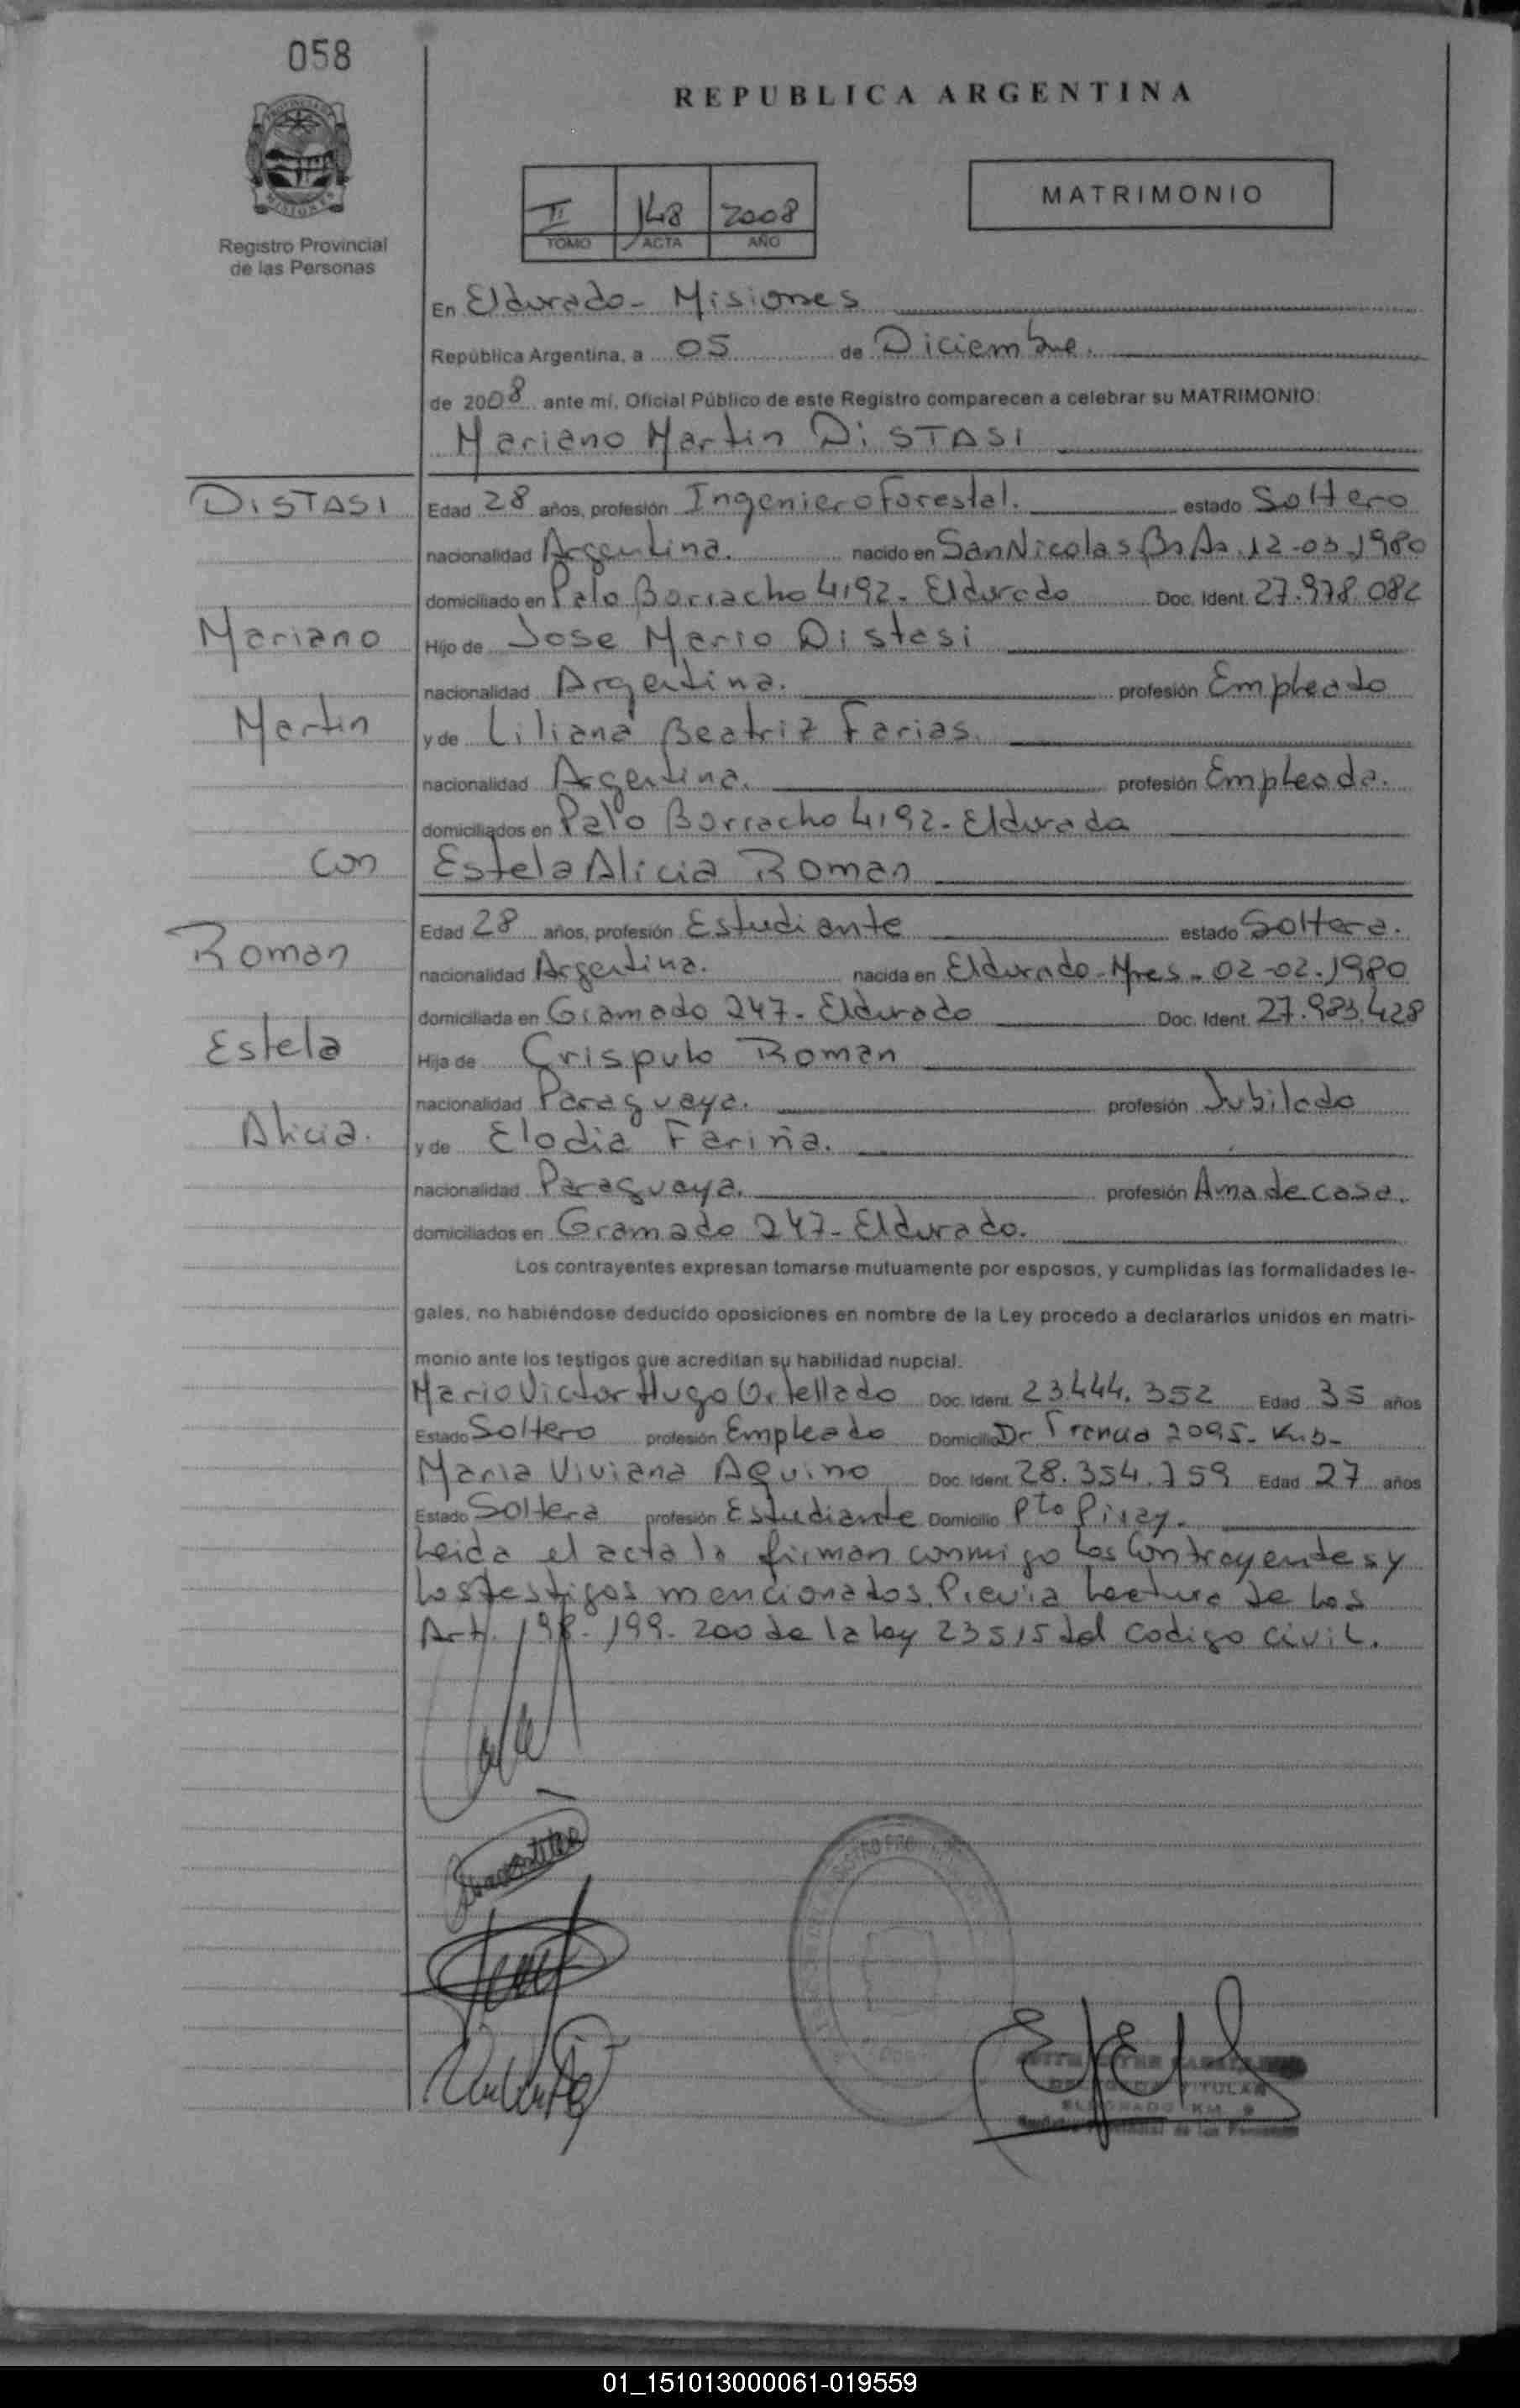 058
REPUBLICA ARGENTINA
PROVINCIA DE
MISIONES
Registro Provincial
de las Personas
II 148 2008
TOMO ACTA AÑO
MATRIMONIO
En Eldorado - Misiones
República Argentina, a 05 de Diciembre.
de 2008 ante mí, Oficial Público de este Registro comparecen a celebrar su MATRIMONIO:
Mariano Martin DiSTASI
DiSTASI Edad 28 años, profesión Ingeniero Forestal. estado Soltero
nacionalidad Argentina. nacido en San Nicolas Bs As. 12-03-1980
domiciliado en Palo Borracho 4192- Eldorado Doc. Ident. 27.978.082
Mariano Hijo de Jose Mario Distasi
nacionalidad Argentina. profesión Empleado
Martin y de Liliana Beatriz Farias.
nacionalidad Argentina. profesión Empleada.
domiciliados en Palo Borracho 4192- Eldorado
Con Estela Alicia Roman
Edad 28 años, profesión Estudiante estado Soltera.
Roman
nacionalidad Argentina. nacida en Eldorado-Mnes- 02-02-1980
domiciliada en Gramado 247- Eldorado Doc. Ident. 27.983.428
Estela Hija de Crispulo Roman
nacionalidad Paraguaya. profesión Jubilado
Alicia. y de Elodia Fariña.
nacionalidad Paraguaya. profesión Ama de casa.
domiciliados en Gramado 247- Eldorado.
Los contrayentes expresan tomarse mutuamente por esposos, y cumplidas las formalidades le-
gales, no habiéndose deducido oposiciones en nombre de la Ley procedo a declararlos unidos en matri-
monio ante los testigos que acreditan su habilidad nupcial.
Mario Victor Hugo Ortellado Doc. Ident. 23.444.352 Edad 35 años
Estado Soltero profesión Empleado Domicilio Dr 2095-
Maria Viviana Aquino Doc. Ident. 28.354.759 Edad 27 años
Estado Soltera profesión Estudiante Domicilio Pto Piray.
Leida el acta la firman conmigo los Contrayentes y
los testigos mencionados. Previa Lectura de los
Art. 198- 199- 200 de la Ley 23515 del codigo civil.
TITULAR
ELDORADO KM 9
Registro Provincial de las Personas
01_151013000061-019559